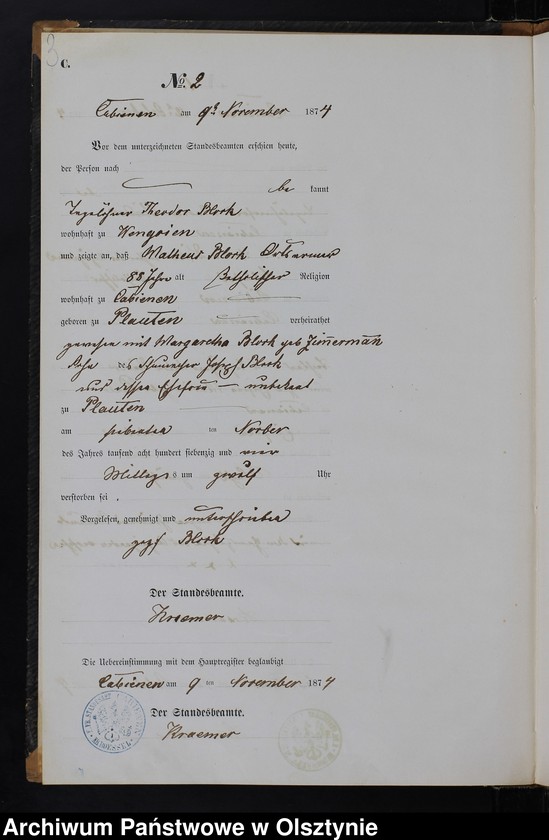 3
C.
No. 2
Cabienen am 9t November 1874
Vor dem unterzeichneten Standesbeamten erschien heute,
der Person nach
be kannt
Tagelöhner Theodor Block
wohnhaft zu Wengoien
und zeigte an, daß Matheus Block Ortsarmer
88 Jahr alt Katholischer Religion
wohnhaft zu Cabienen
geboren zu Plauten verheirathet
gewesen mit Margaretha Block geb Zimmermann
Sohn des Schumacher Josepf Block
und dessen Ehefrau — unbekant
zu Plauten
am siebenten ten Norber
des Jahres tausend acht hundert siebenzig und vier
Mittags um zwölf Uhr
verstorben sei.
Vorgelesen, genehmigt und unterschrieben
gez. Block
Der Standesbeamte.
Kraemer
Die Uebereinstimmung mit dem Hauptregister beglaubigt
Cabienen am 9 ten November 1874
Der Standesbeamte.
Kraemer
Archiwum Państwowe w Olsztynie